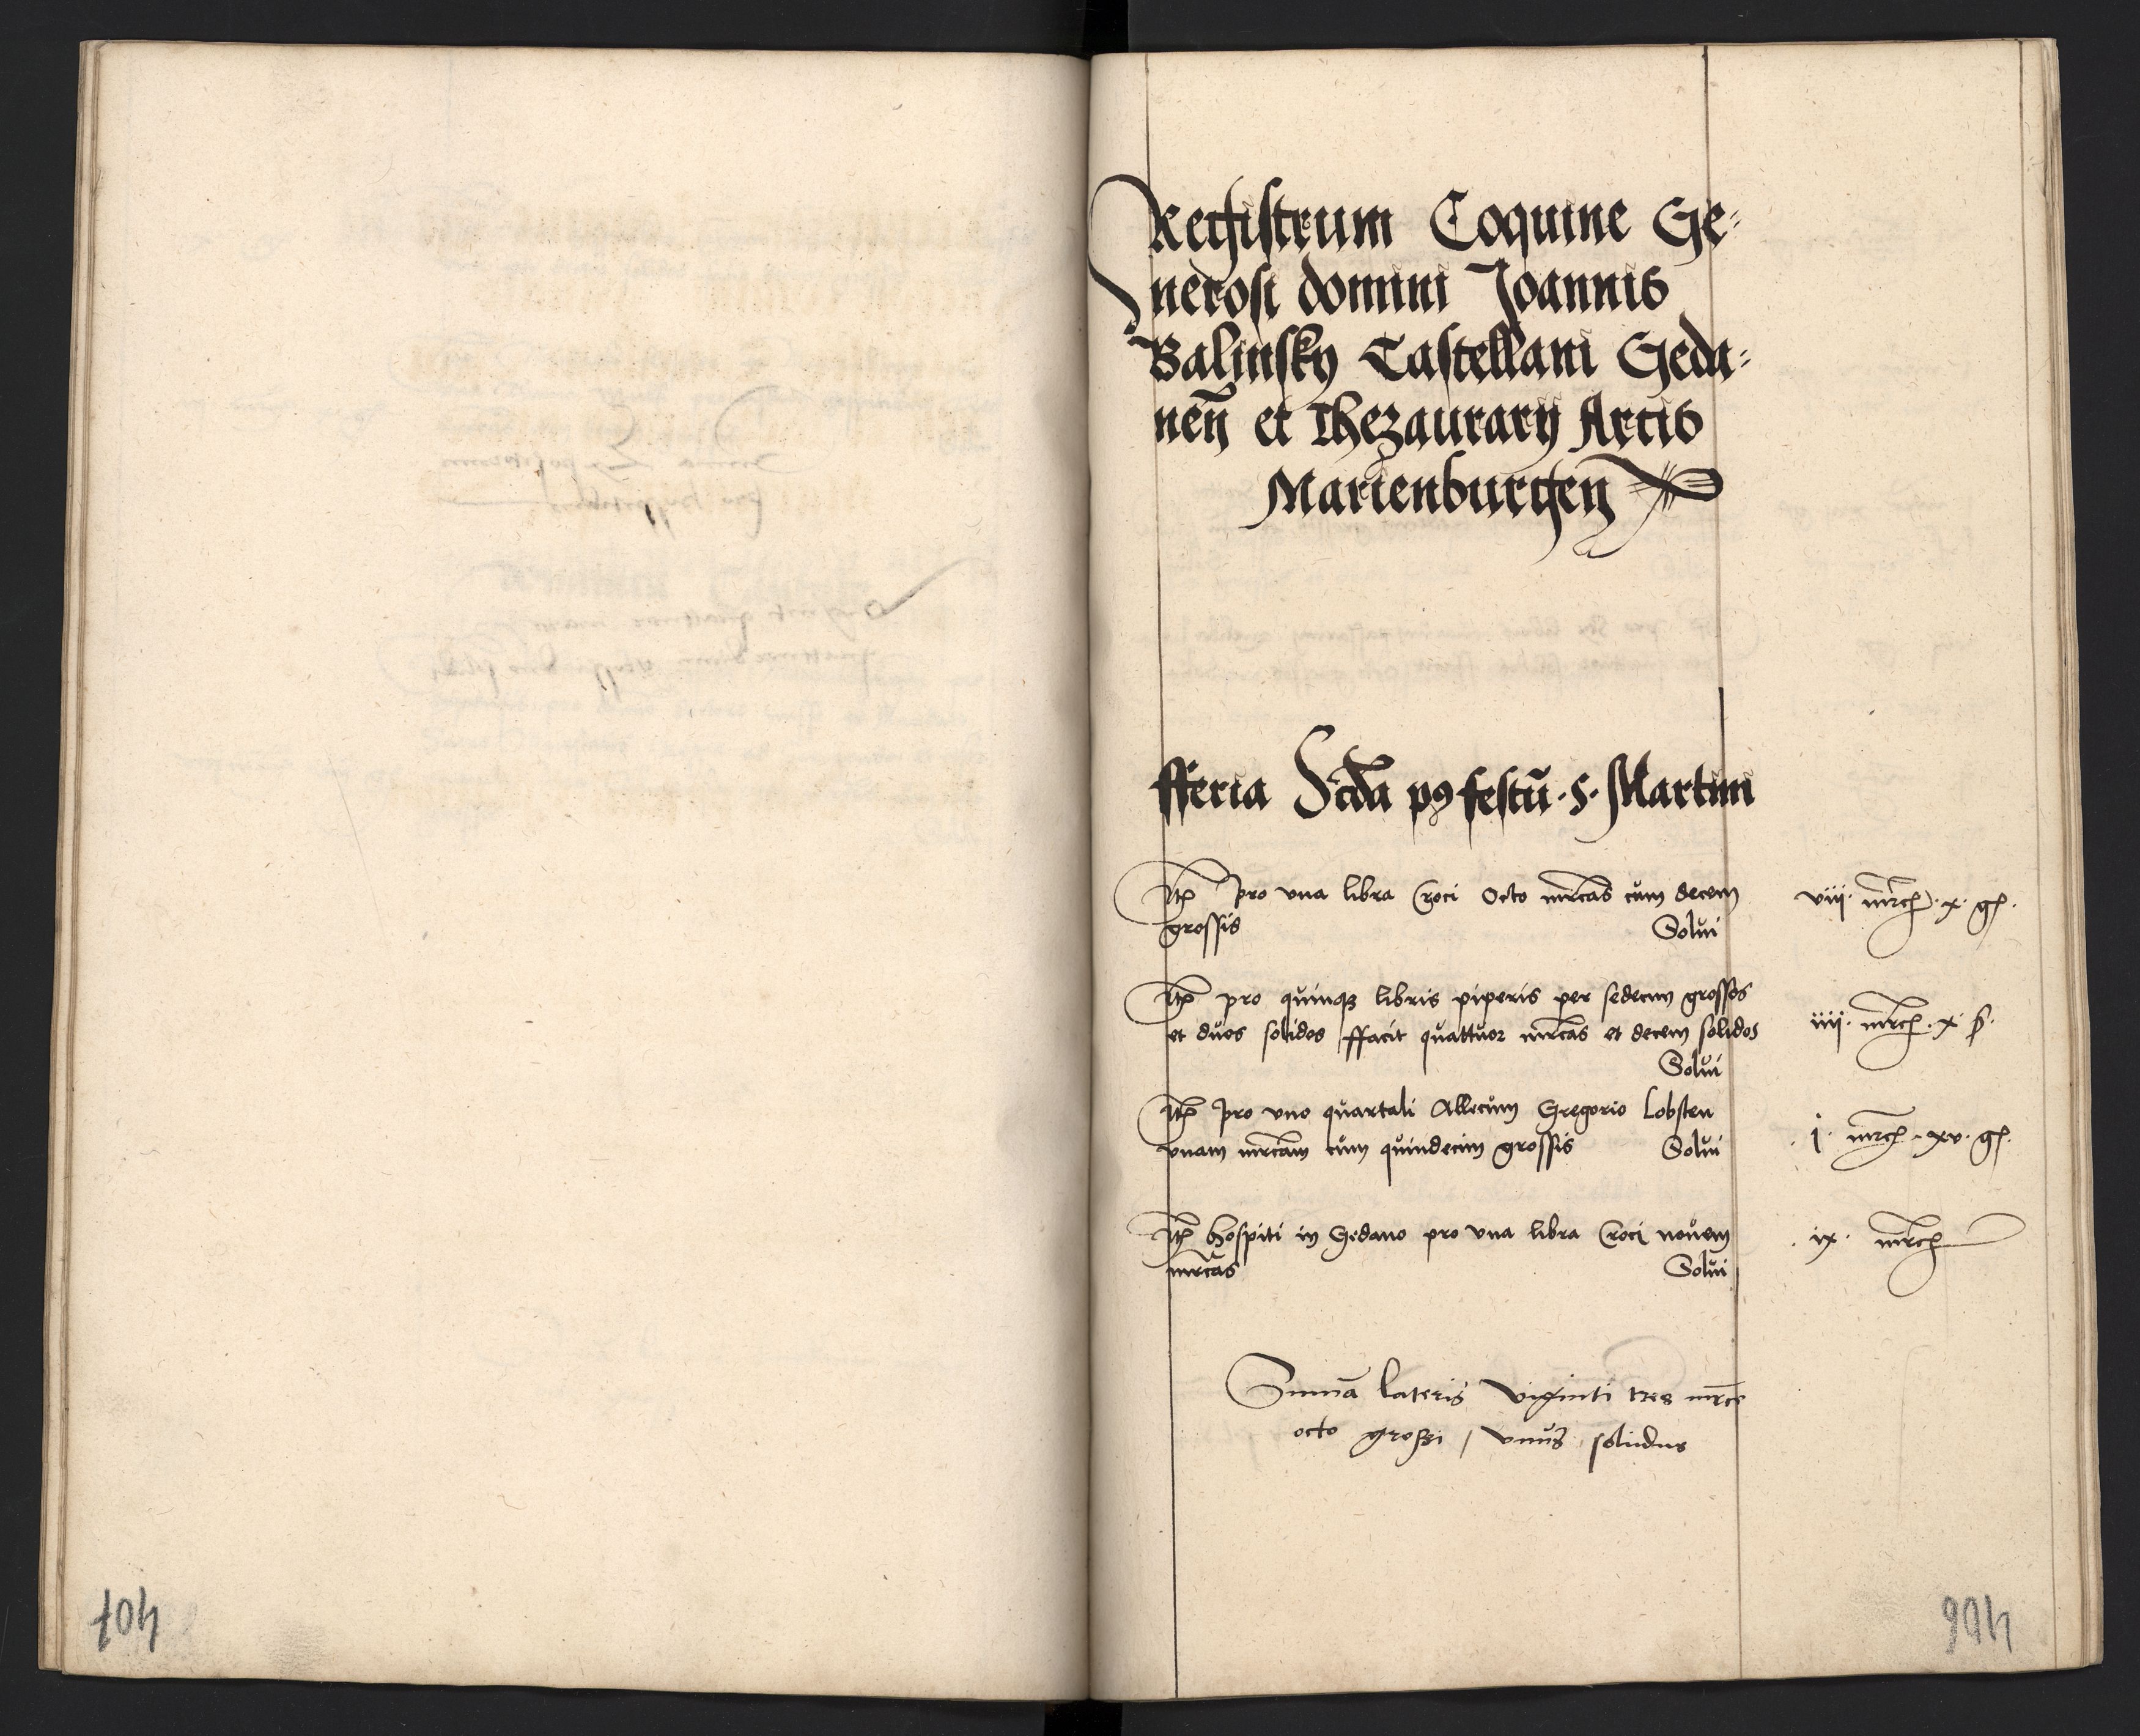 407
Registrum Coquine Ge=
nerosi domini Joannis
Balinsky Castellani Geda=
neñ et Thezaurarij Arcis
Marienburgeñ
fferia Scđa p9 festū · S · Martini
Itm̄ pro vna libra Croci Octo mrcas cum decem
grossis Solui
viij · mrcͫ · x · gͬ ·
Itm̄ pro quinqȝ libris piperis per sedecim grossos
et duos solidos ffacit quattuor mrcas et decem solidos
Solui
iiij · mrcͫ · x · ß ·
Itm̄ pro vno quartali Allecum Gregorio Lobsten
vnam mrcam cum quindecim grossis Solui
· j · mrcͫ · xv · gͬ ·
Itm̄ hospiti in Gedano pro vna libra Croci nouem
mrcas Solui
· ix · mrcͫ
Summa lateris viginti tres mrce
octo grossi / vnus solidus
406